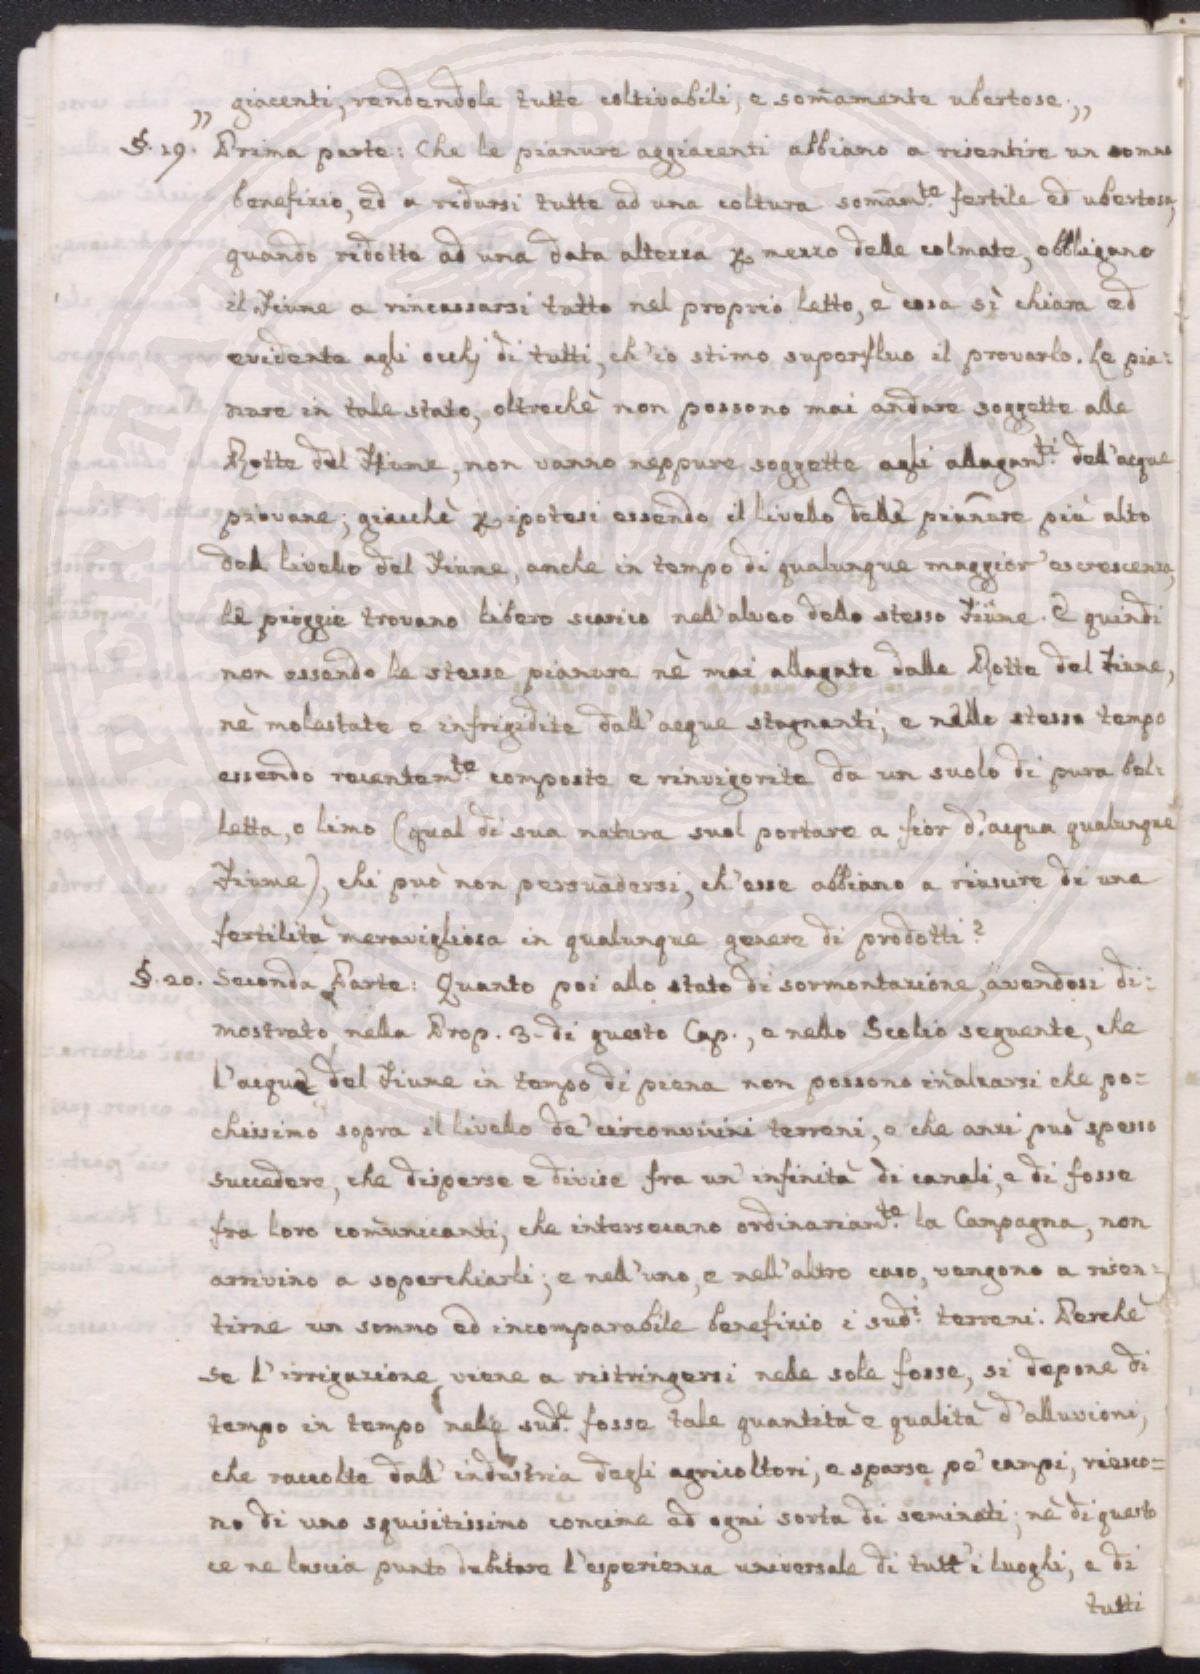 „ giacenti, rendendole tutte coltivabili, e som̃amente ubertose. „
§. 19. Prima parte: Che le pianure aggiacenti abbiano a risentire un sommo
benefizio, ed a ridursi tutte ad una coltura som̃am.te fertile ed ubertosa,
quando ridotte ad una data altezza p mezzo delle colmate, obbligano
il Fiume a rincassarsi tutto nel proprio letto, è cosa sì chiara ed
evidente agli occhj di tutti, ch'io stimo superfluo il provarlo. Le pia:
nure in tale stato, oltrechè non possono mai andare soggette alle
Rotte del Fiume, non vanno neppure soggette agli allagam.ti dell'acque
piovane; giacchè p ipotesi essendo il livello delle pianure più alto
del livello del Fiume, anche in tempo di qualunque maggior'escrescenza,
le pioggie trovano libero scarico nell'alveo dello stesso Fiume. E quindi
non essendo le stesse pianure nè mai allagate dalle Rotte del Fiume,
nè molestate e infrigidite dall'acque stagnanti, e nello stesso tempo
essendo recentem.te composte e rinvigorite da un suolo di pura bel:
letta, o limo (qual di sua natura suol portare a fior d'acqua qualunque
Fiume), chi può non persuadersi, ch'esse abbiano a riuscire di una
fertilità meravigliosa in qualunque genere di prodotti?
§. 20. Seconda Parte: Quanto poi allo stato di sormontazione, avendosi di:
mostrato nella Prop. 3. di questo Cap., e nello Scolio seguente, che
l'acque del Fiume in tempo di piena non possono inalzarsi che po=
chissimo sopra il livello de' circonvicini terreni, e che anzi può spesso
succedere, che disperse e divise fra un'infinità di canali, e di fosse
fra loro com̃unicanti, che intersecano ordinariam.te la Campagna, non
arrivino a soperchiarli; e nell'uno, e nell'altro caso, vengono a risen=
tirne un sommo ed incomparabile benefizio i sud.i terreni. Perchè
se l'irrigazione viene a ristringersi nelle sole fosse, si depone di
tempo in tempo nelle sud.e fosse tale quantità e qualità d'alluvioni,
che raccolte dall'industria degli agricoltori, e sparse pe' campi, riesco=
no di uno squisitissimo concime ad ogni sorta di seminati; nè di questo
ce ne lascia punto dubitare l'esperienza universale di tutt'i luoghi, e di
tutti